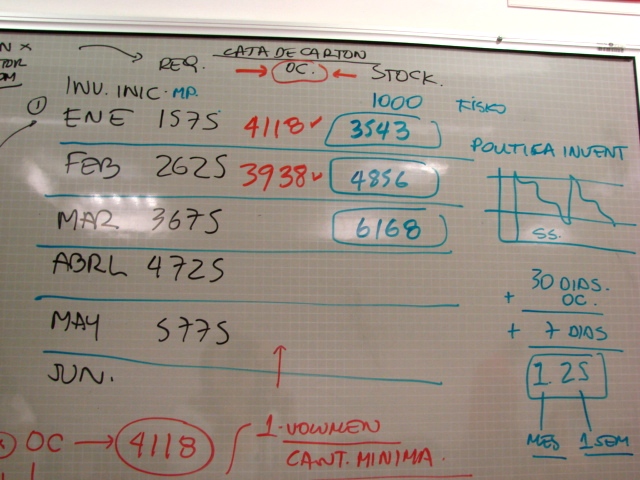 N x
CATA DE CARTON
REQ. → OC. ← STOCK.
INV. INIC. MP. 1000 FISKO
1
ENE 1575 4118 ✓ 3543
FEB 2625 3938 ✓ 4856
MAR 3675 6168
ABRL 4725
MAY 5775
JUN.
POLITIKA INVENT
SS.
30 DIAS.
+ OC.
+ 7 DIAS
1.25
MES 1 SEM
OC → 4118
1. VOLUMEN
CANT. MINIMA.